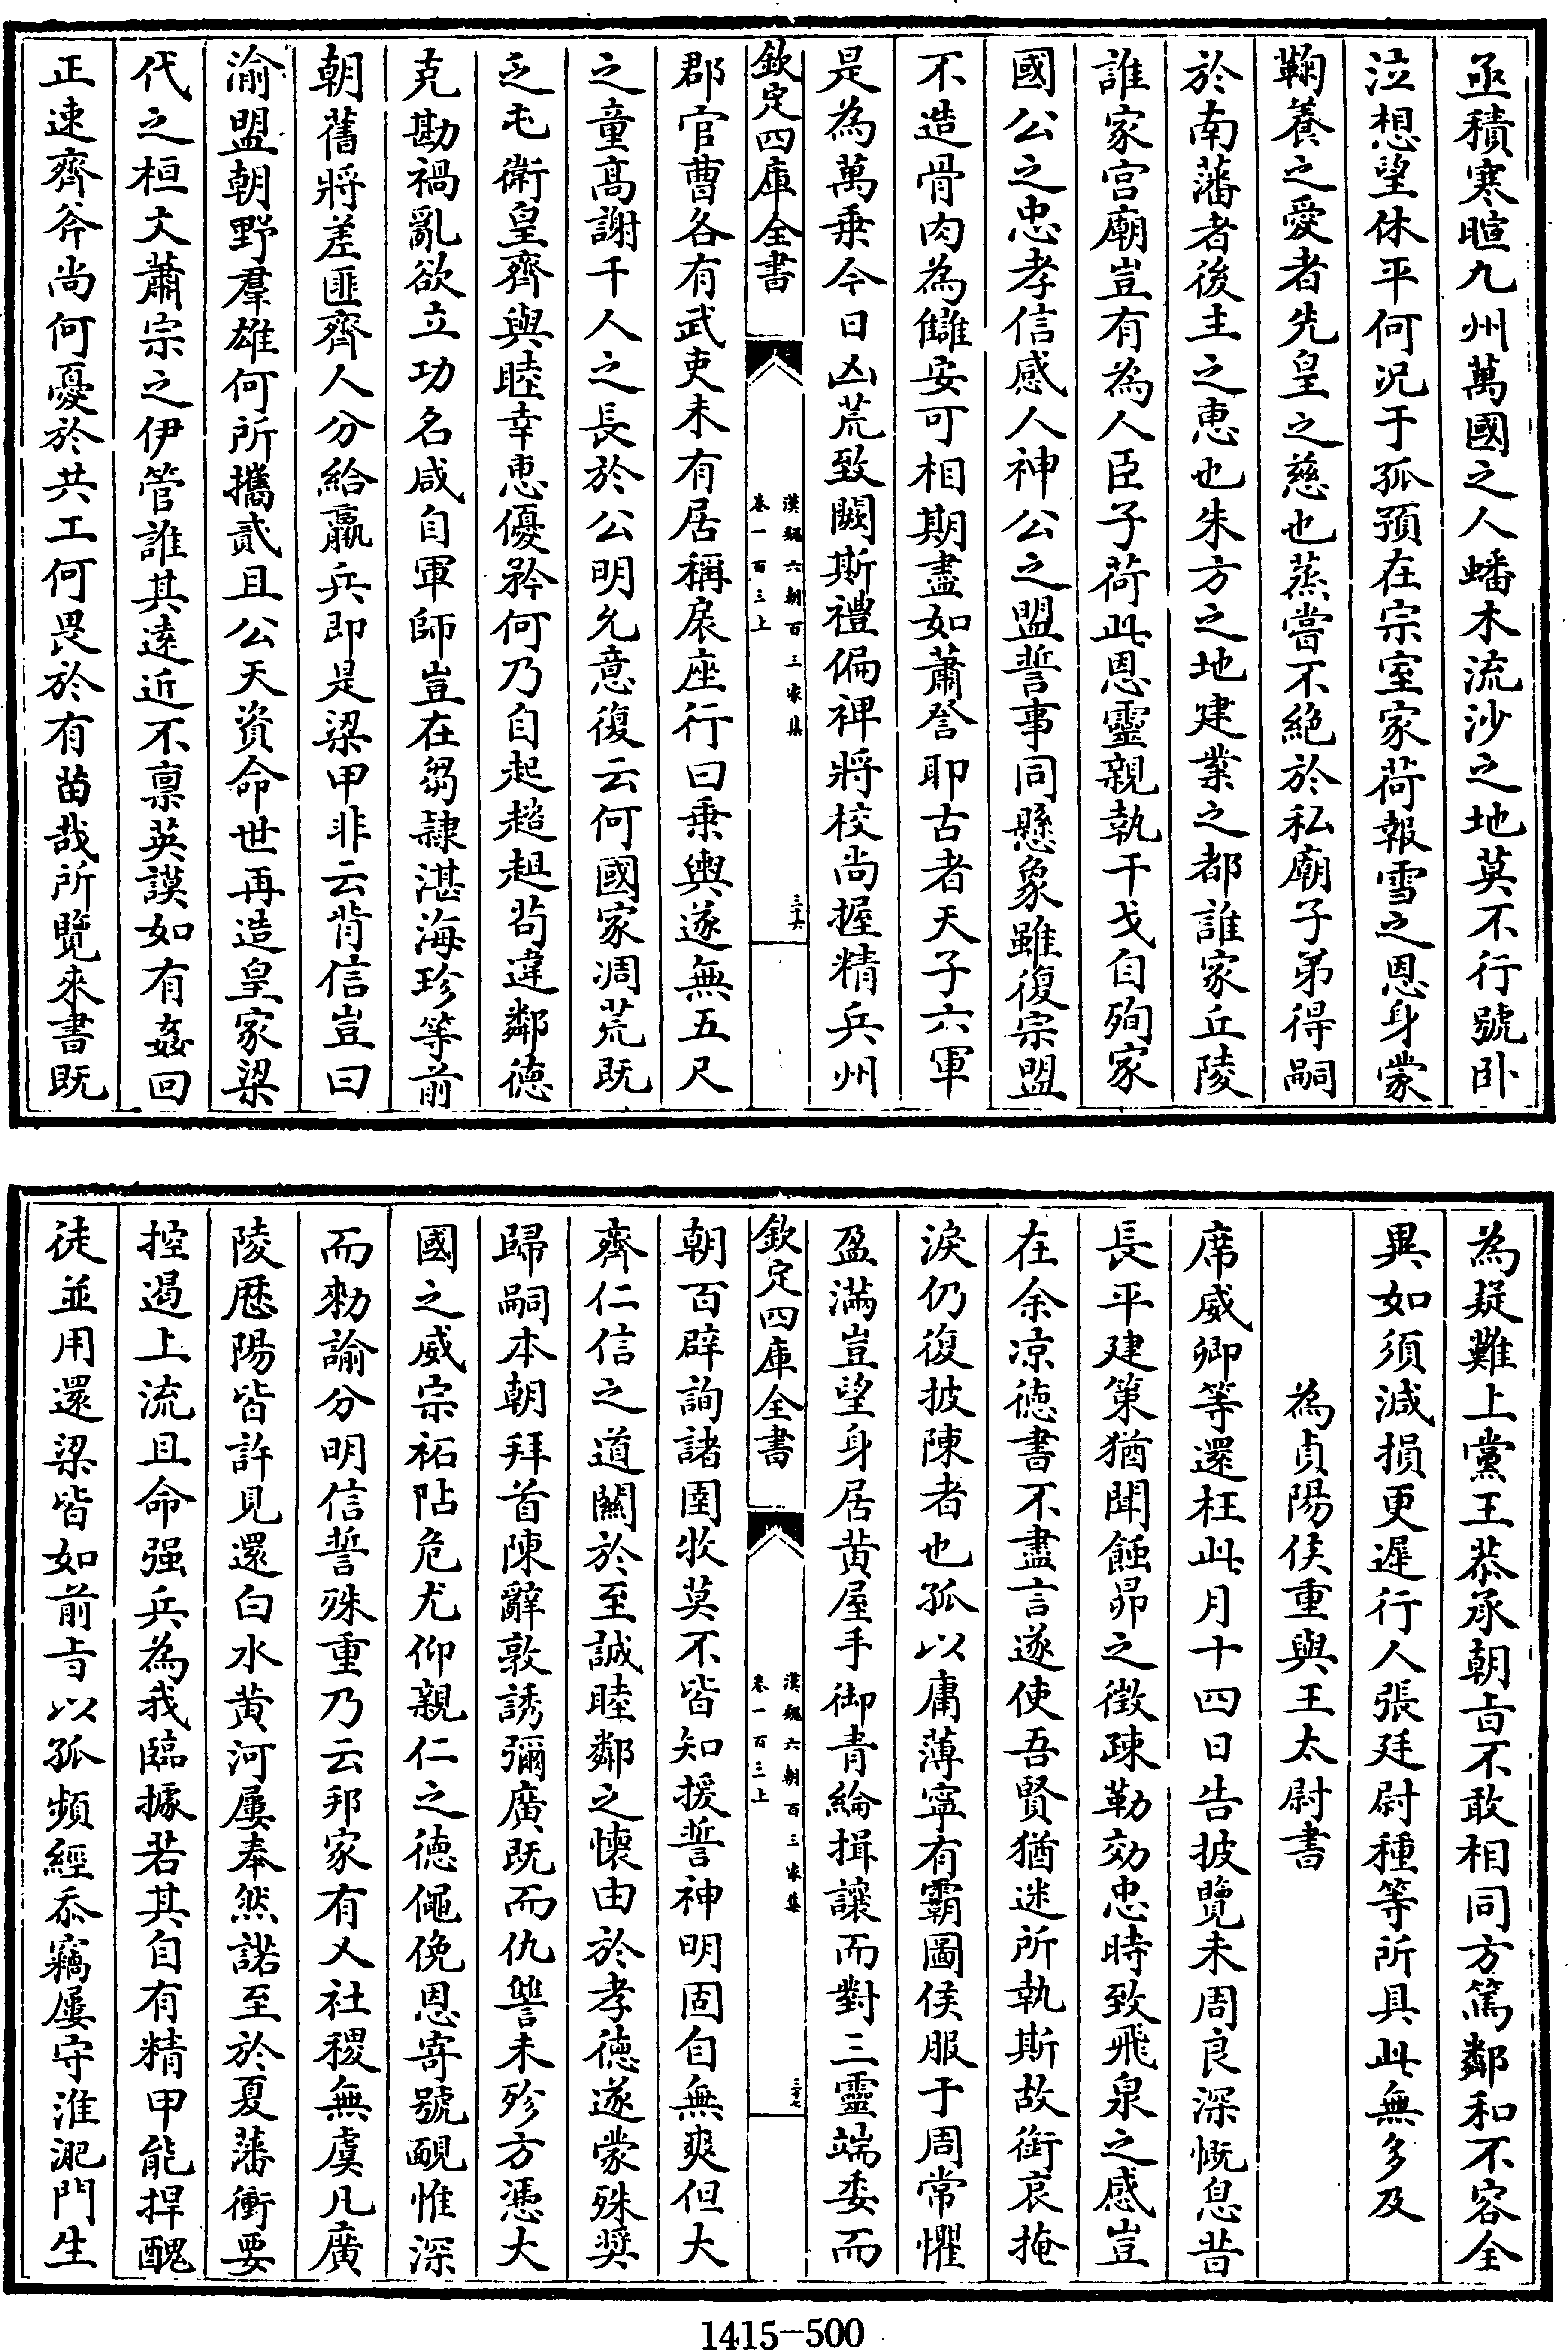 亟積寒暄九州萬國之人蟠木流沙之地莫不行號卧
泣想望休平何况于孤預在宗室家荷報雪之恩身蒙
鞠養之愛者先皇之慈也蒸嘗不絶於私廟子弟得嗣
於南藩者後主之恵也朱方之地建業之都誰家丘陵
誰家宫廟豈有為人臣子荷此恩靈親執干戈自殉家
國公之忠孝信感人神公之盟誓事同懸象雖復宗盟
不造骨肉為讎安可相期盡如蕭詧耶古者天子六軍
是為萬乗今日凶荒致闕斯禮偏裨將校尚握精兵州
欽定四庫全書
漢魏六朝百三家集
卷一百三上
三十六
郡官曹各有武吏未有居稱扆座行曰乗輿遂無五尺
之童高謝千人之長於公明允意復云何國家凋荒既
乏屯衛皇齊與睦幸恵優矜何乃自起趦趄茍違鄰德
克勘禍亂欲立功名咸自軍師豈在芻隷湛海珍等前
朝舊將差匪齊人分給羸兵即是梁甲非云背信豈曰
渝盟朝野羣雄何所攜貳且公天資命世再造皇家梁
代之桓文蕭宗之伊管誰其逺近不禀英謨如有姦回
正速齊斧尚何憂於共工何畏於有苗哉所覽來書既
為疑難上黨王恭承朝㫖不敢相同方篤鄰和不容全
異如須減損更遲行人張廷尉種等所具此無多及
為貞陽侯重與王太尉書
席威卿等還枉此月十四日告披覽未周良深慨息昔
長平建策猶聞蝕昴之徵疎勒効忠時致飛泉之感豈
在余凉德書不盡言遂使吾賢猶迷所執斯故銜哀掩
淚仍復披陳者也孤以庸薄寧有霸圖侯服于周常懼
盈滿豈望身居黄屋手御青綸揖讓而對三靈端委而
欽定四庫全書
漢魏六朝百三家集
卷一百三上
三十七
朝百辟詢諸圉牧莫不皆知援誓神明固自無爽但大
齊仁信之道闗於至誠睦鄰之懐由於孝德遂蒙殊奬
歸嗣本朝拜首陳辭敦誘彌廣既而仇讐未殄方憑大
國之威宗祏阽危尤仰親仁之德僶俛恩寄號靦惟深
而勑諭分明信誓殊重乃云邦家有乂社稷無虞凡廣
陵厯陽皆許見還白水黄河屢奉然諾至於夏藩衝要
控遏上流且命强兵為我臨據若其自有精甲能捍醜
徒並用還梁皆如前㫖以孤頻經忝竊屢守淮淝門生
1415-500